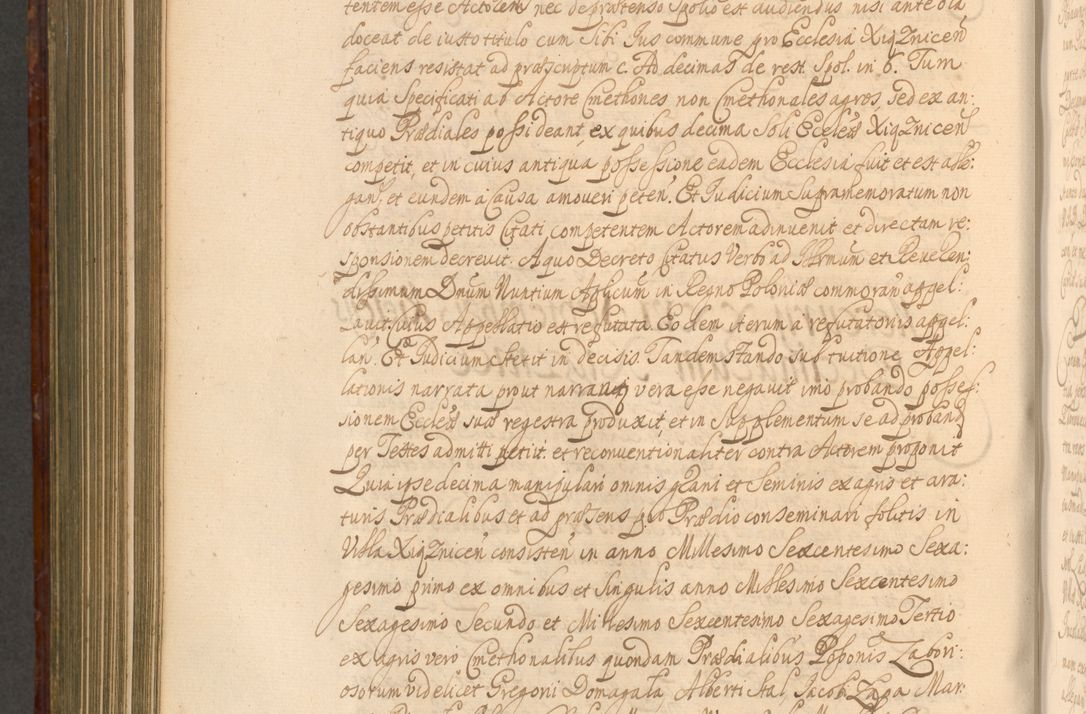 tentem esse Actorem nec de prætenso Spolio est audiendus nisi ante oîa
doceat de iusto titulo cum Sibi Jus commune pro Ecclesia Xiqznicen̄
faciens resistat ad præscriptum c. Ad decimas de rest. Spol. in 6. Tum
quia Specificati ab Actore Cmethones non Cmethonales agros, sed ex an:
tiquo Prædiales possideant, ex quibus decima Soli Eccleæ Xiqznicen̄
competit, et in cuius antiqua possessione eadem Ecclesia fuit et est alle:
gan̄. et eundem a Causa amoveri peten̄. Et Judicium Supramemoratum non
obstantibus petitis Citati competentem Actorem adinvenit et directam re:
sponsionem decrevit. A quo Decreto Citatus Verbo ad Illrmum et Reveren:
dissimum Dnūm Nuntium Aplicum in Regno Poloniæ commoran̄ appel:
lavit. cuius Appellatio est refutata. Eodem iterum a refutatonis appel:
lan̄. Et Judicium stetit in decisis. Tandem stando sub tuitione Appel:
lationis narrata prout narrantur vera esse negavit imo probando posses:
sionem Eccleæ suæ regestra produxit, et in Supplementum se adproband
per Testes admitti petiit. et reconventionaliter contra Actorem proponit
Quia ipse decima manipulari omnis grani et Seminis ex agris et ara:
turis Prædialibus et ad præsens pro Prædio conseminari solitis in
Villa Xiqznicen̄ consisten̄ in anno Millesimo Sexcentesimo Sexa:
gesimo primo ex omnibus et Singulis anno Millesimo Sexcentesimo
Sexagesimo Secundo et Millesimo Sexcentesimo Sexagesimo Tertio
ex agris vero Cmethonalibus quondam Prædialibus Zabori:
osorum videlicet Gregorii Domagala, Alberti Stal, Jacobi Zapa Mar: